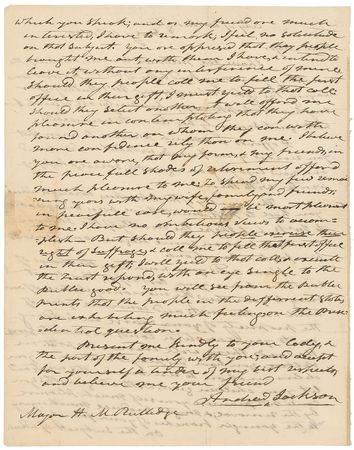 which you speak; and as my friend are much
interested, I have to remark, I feel no solicitude
on that subject. You are apprised that they people
brought me out, with them I have, & intend to
leave it without any interference of mine.
Should they people call me to fill the first
office in their gift, I must yield to that call.
Should they select another it will afford me
pleasure in contemplating that they have
found another on whom they can with
more confidence rely than on me. I believe
you are aware, that my farm, & my friends, in
the peacefull shades of retirement afford
much pleasure to me; to spend my few remai
ning years with my wife, family and friends,
in peacefull ease, would be most pleasant
to me. I have no ambitious views to accom-
plish — But should they people exercise their
right of suffrage & call me to fill that first office
in their gift, I will yield to that call, & execute
the trust reposed, with an eye single to the
Public good. You will see from the Public
prints that the people in the different states,
are exhibiting much feeling on the Presi-
dential question.
Present me kindly to your Lady, &
the part of the family with you, and accept
for yourself a tender of my best respects
and believe me your friend
Andrew Jackson
Major H. M. Rutledge